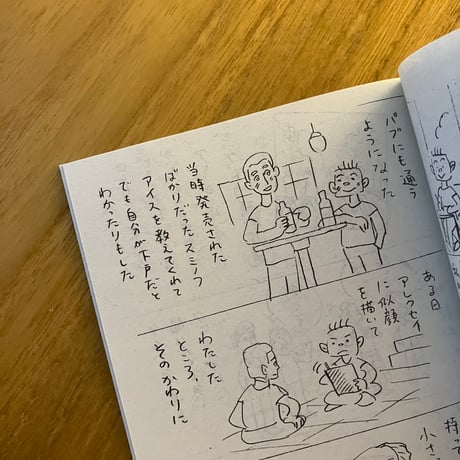 パブにも通う
ようになった
当時発売された
ばかりだったスミノフ
アイスを教えてくれて
でも自分が下戸だと
わかったりもした
ある日
アレクセイ
に似顔
を描いて
わたした
ところ、
そのかわりに
持って
小さ